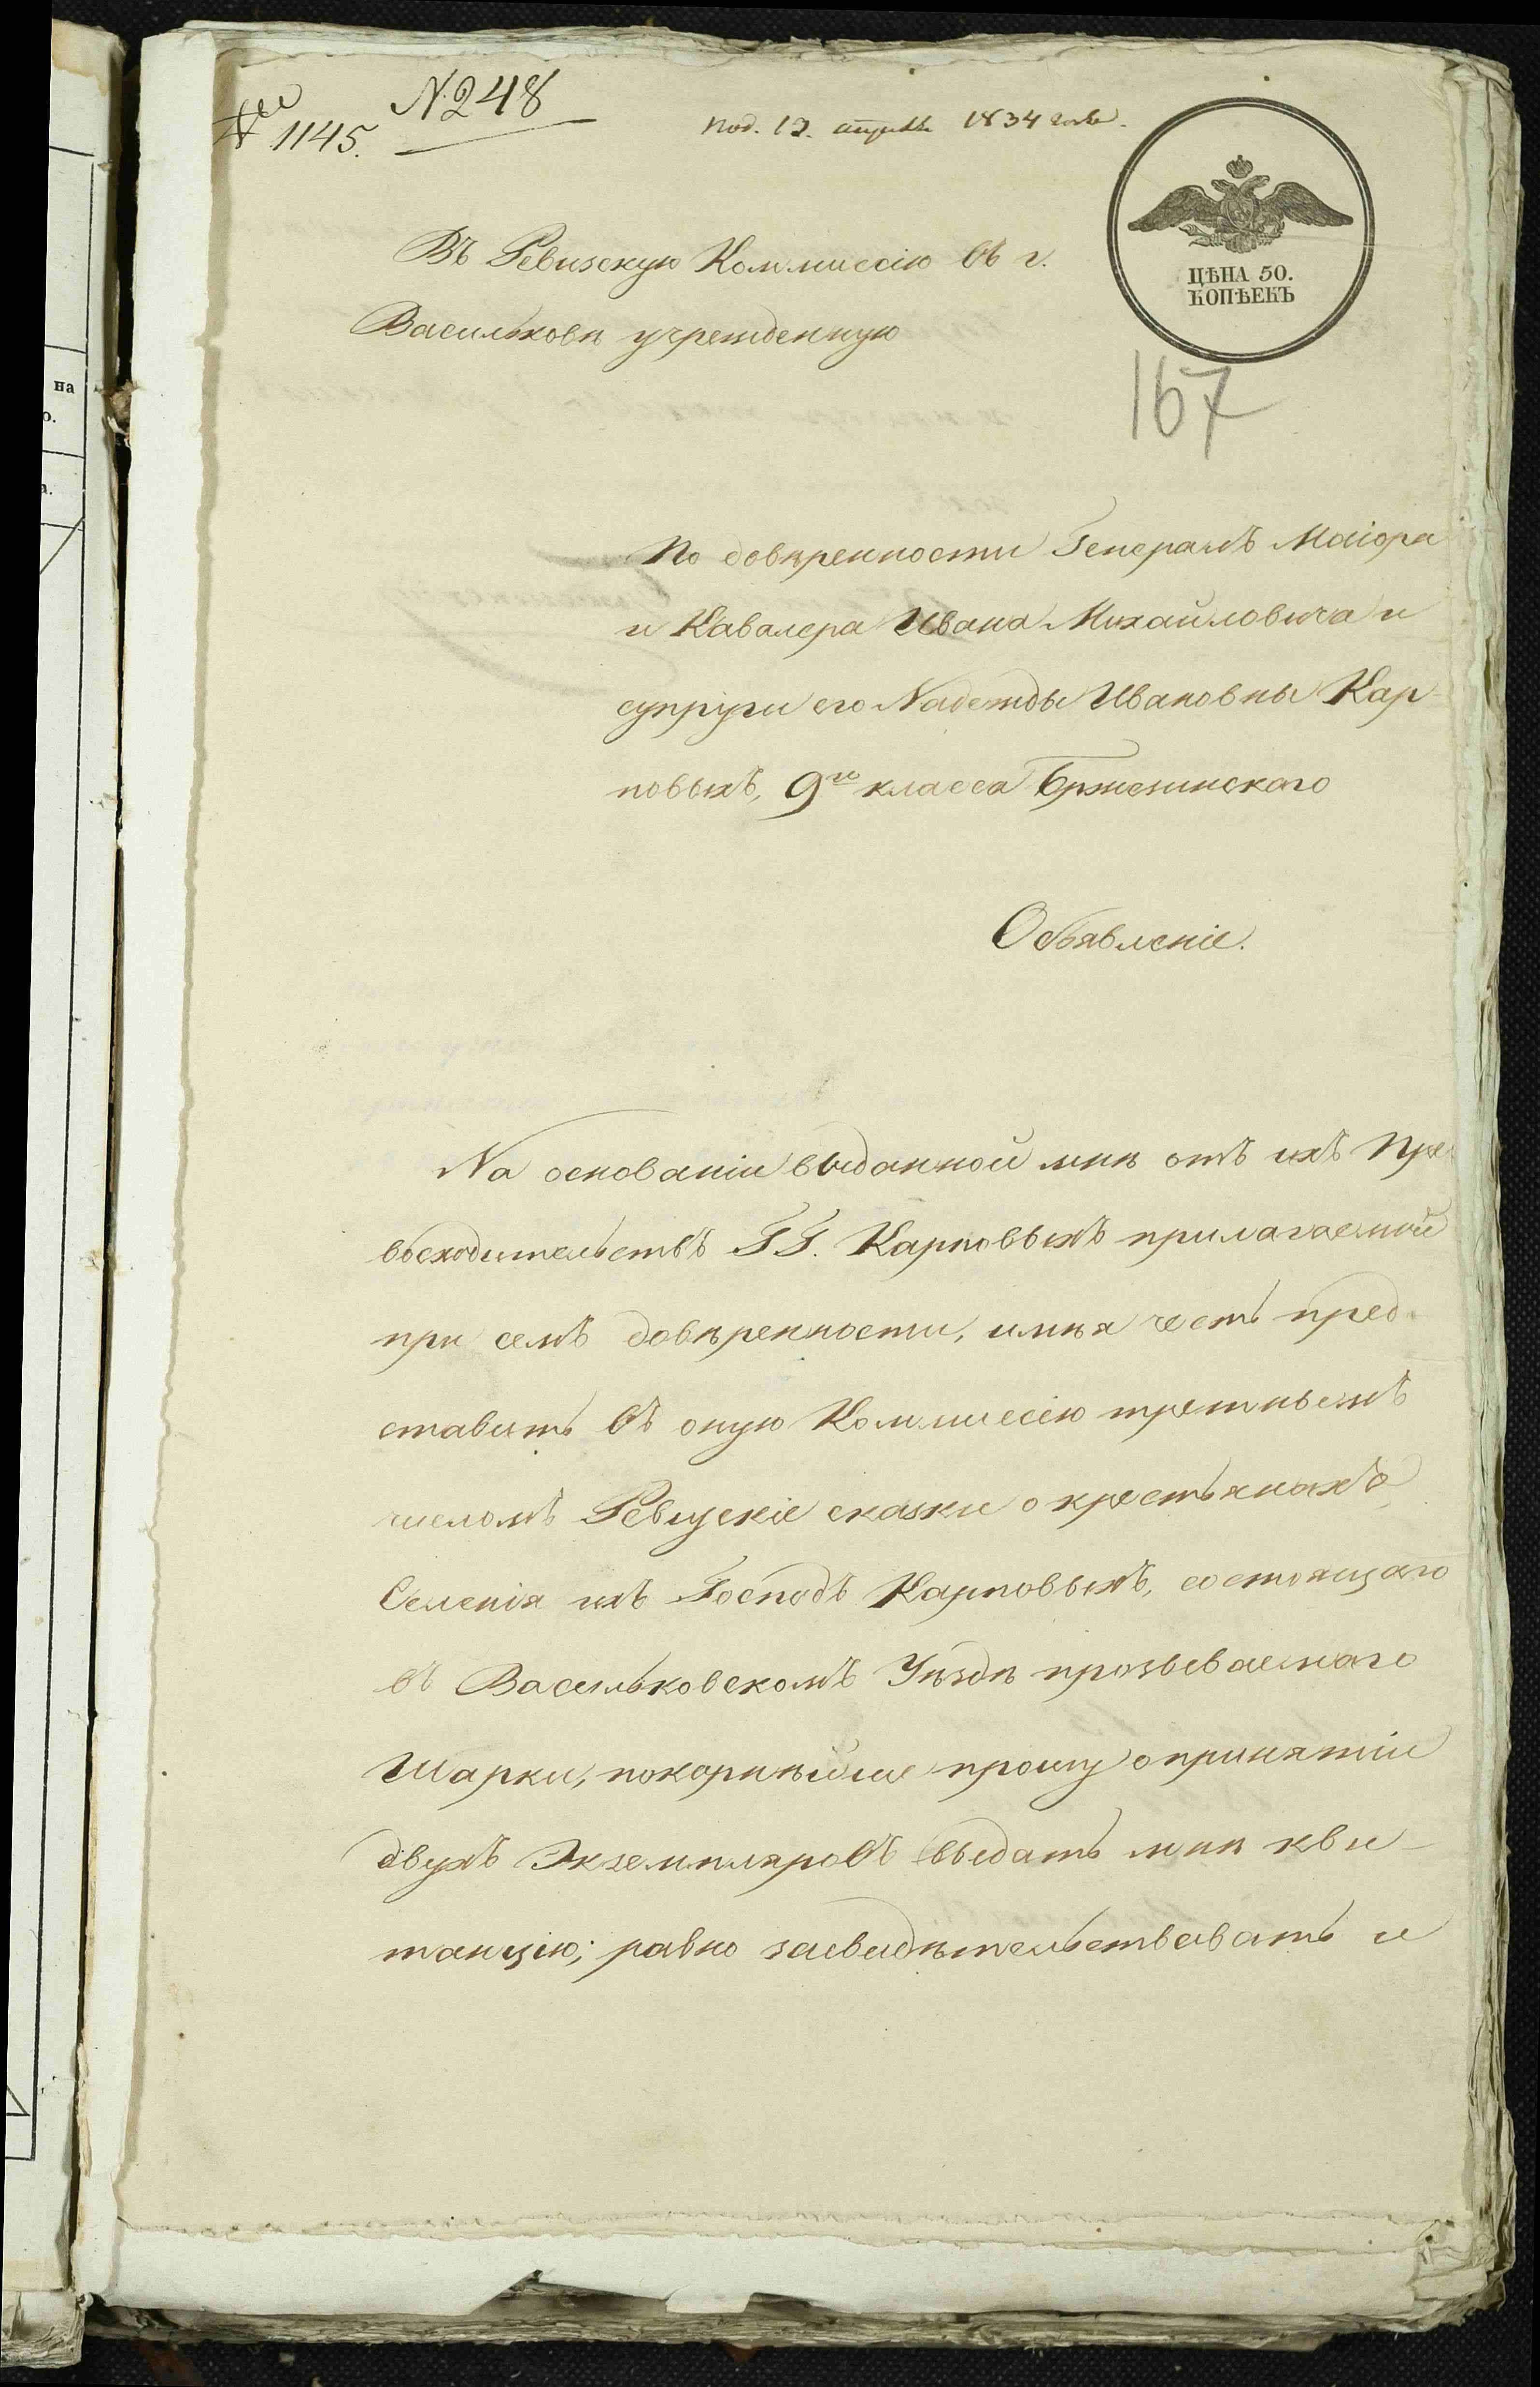 N. 248
1145.
Под. 12. апреля 1834 года.
ЦѢНА 50.
КОПѢЕКЪ
Въ Ревизскую Коммиссію въ г.
Васильковѣ учрежденную
167
По довѣренности Генералъ Маіора
и Кавалера Ивана Михайловича и
супруги его Надежды Ивановны Кар-
повыхъ, 9го класса Бржезинскаго
Объявленіе.
На основаніи выданной мнѣ отъ ихъ Пре
восходительствъ ГГ. Карповыхъ прилагаемой
при семъ довѣренности, имѣя честь пред-
ставить въ оную Коммиссію третнымъ
числомъ Ревизскіе сказки о крестьянахъ
Селенія ихъ Господъ Карповыхъ, состоящаго
въ Васильковскомъ Уѣздѣ прозываемаго
Шарки, покорнѣйше прошу о принятіи
двухъ Экземпляровъ выдать мнѣ кви-
танцію; равно засвидѣтельствовать и
на
о.
а.